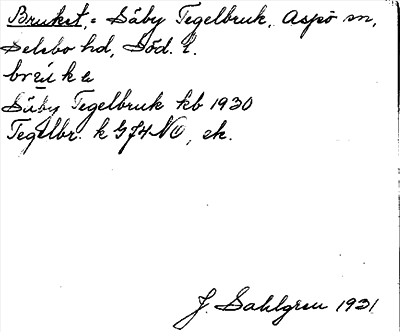 Bruket, = Säby Tegelbruk, Aspö sn,
Selebo hd, Söd. l.
brú̱ke
Säby Tegelbruk kb 1930
Tegelbr. k G74 NO, ek.
J. Sahlgren 1931